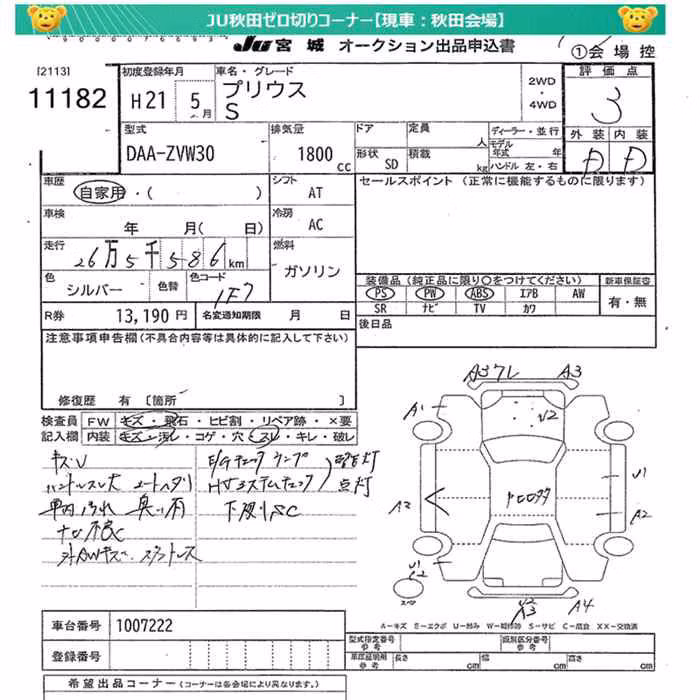 JU秋田ゼロ切りコーナー【現車：秋田会場】
JU 宮城 オークション出品申込書
①会場控
[2113]
11182
初度登録年月
H21 5月
車名・グレード
プリウス
S
2WD
・
4WD
評価点
3
外装 内装
D D
型式
DAA-ZVW30
排気量
1800 CC
ドア
定員 人
形状 SD
積載 kg
ディーラー・並行
モデル年式 年
ハンドル 左・右
車歴
自家用・( )
シフト
AT
セールスポイント (正常に機能するものに限ります)
車検
年 月( 日)
冷房
AC
走行
26万5千586km
燃料
ガソリン
色
シルバー
色替
色コード
1F7
装備品 (純正品に限り○をつけてください)
新車保証書
PS PW ABS エアB AW
SR ナビ TV カワ
有・無
R券 13,190円
名変通知期限 月 日
後日品
注意事項申告欄 (不具合内容等は具体的に記入して下さい)
修復歴 有 [箇所 ]
検査員記入欄
FW キズ・飛石・ヒビ割・リペア跡・×要
内装 キズ・汚レ・コゲ・穴・スレ・キレ・破レ
キズU
ハンドルスレ大 シートヘタリ
車内汚れ 臭い有
ナビ不良
外AWキズ・スタッドレス
E/Gチェックランプ
HVシステムチェック
警告灯
点灯
下廻りSC
A3ワレ A3
A1
U2
U1
A2
A2
U1
C2
スペア
U2
A3
A4
A-キズ E-エクボ U-凹み W-補修跡 S-サビ C-腐食 XX-交換済
車台番号 1007222
登録番号
型式指定番号 参考
類別区分番号 参考
車庫証明用 参考
長さ cm 幅 cm 高さ cm
希望出品コーナー (コーナーは各会場により異なります。)